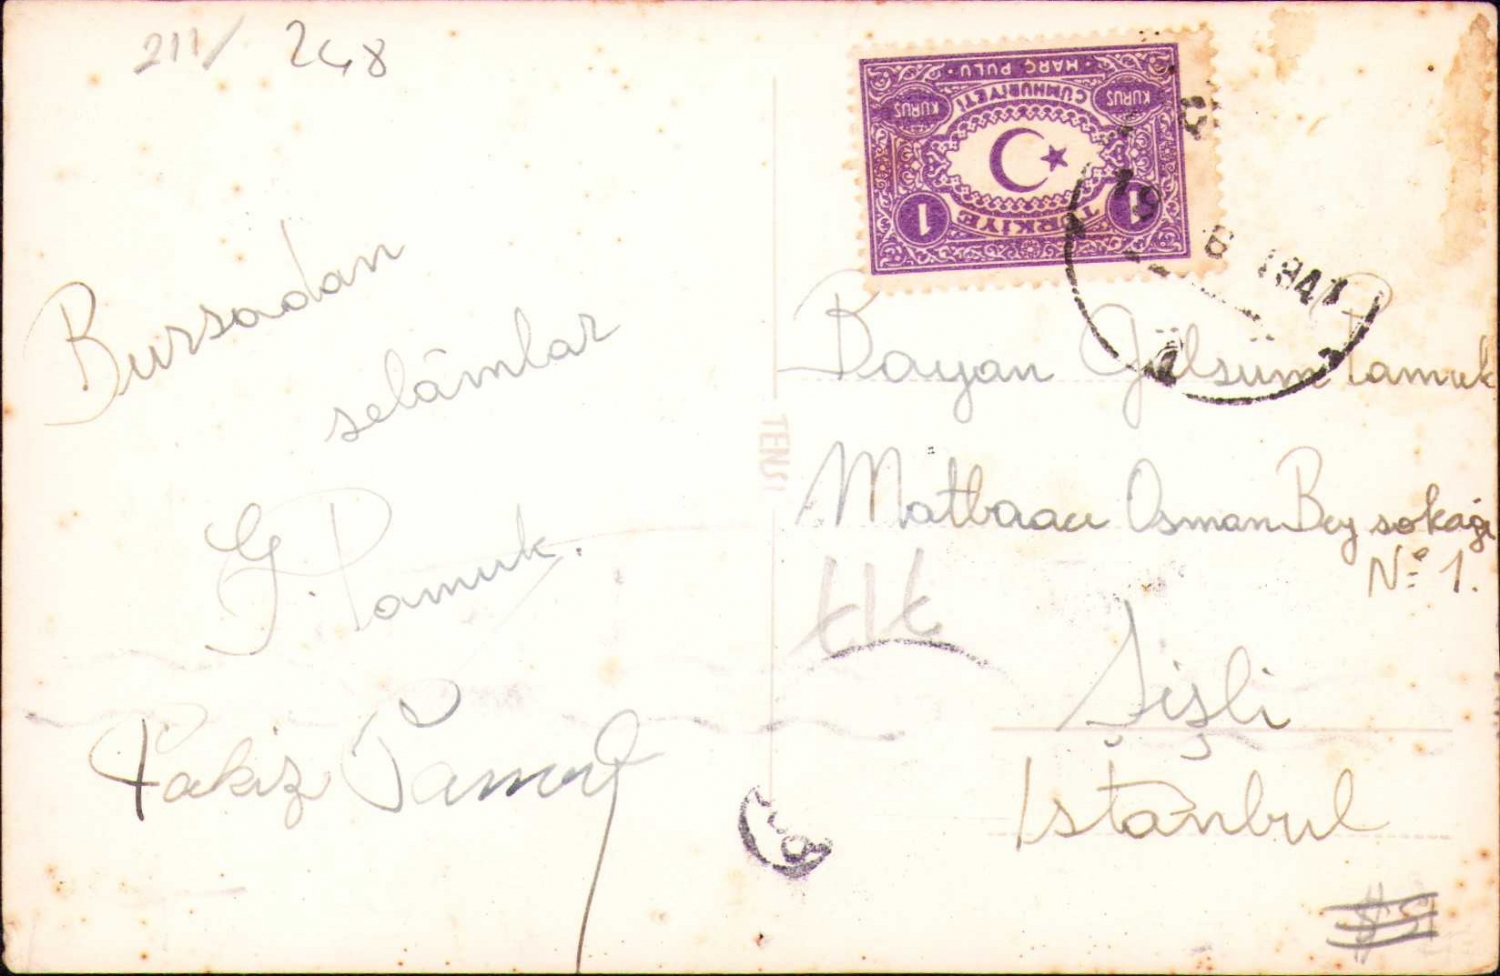 211/ 248
Bursadan
selâmlar
G. Pamuk.
Pakiz Pamuk
TÜRKİYE
CUMHURİYETİ
HARÇ PULU
KURUŞ KURUŞ
1 1
19 6 1941
Bayan Gülsüm Pamuk
Matbaacı Osman Bey sokağı
No 1.
Şişli
İstanbul